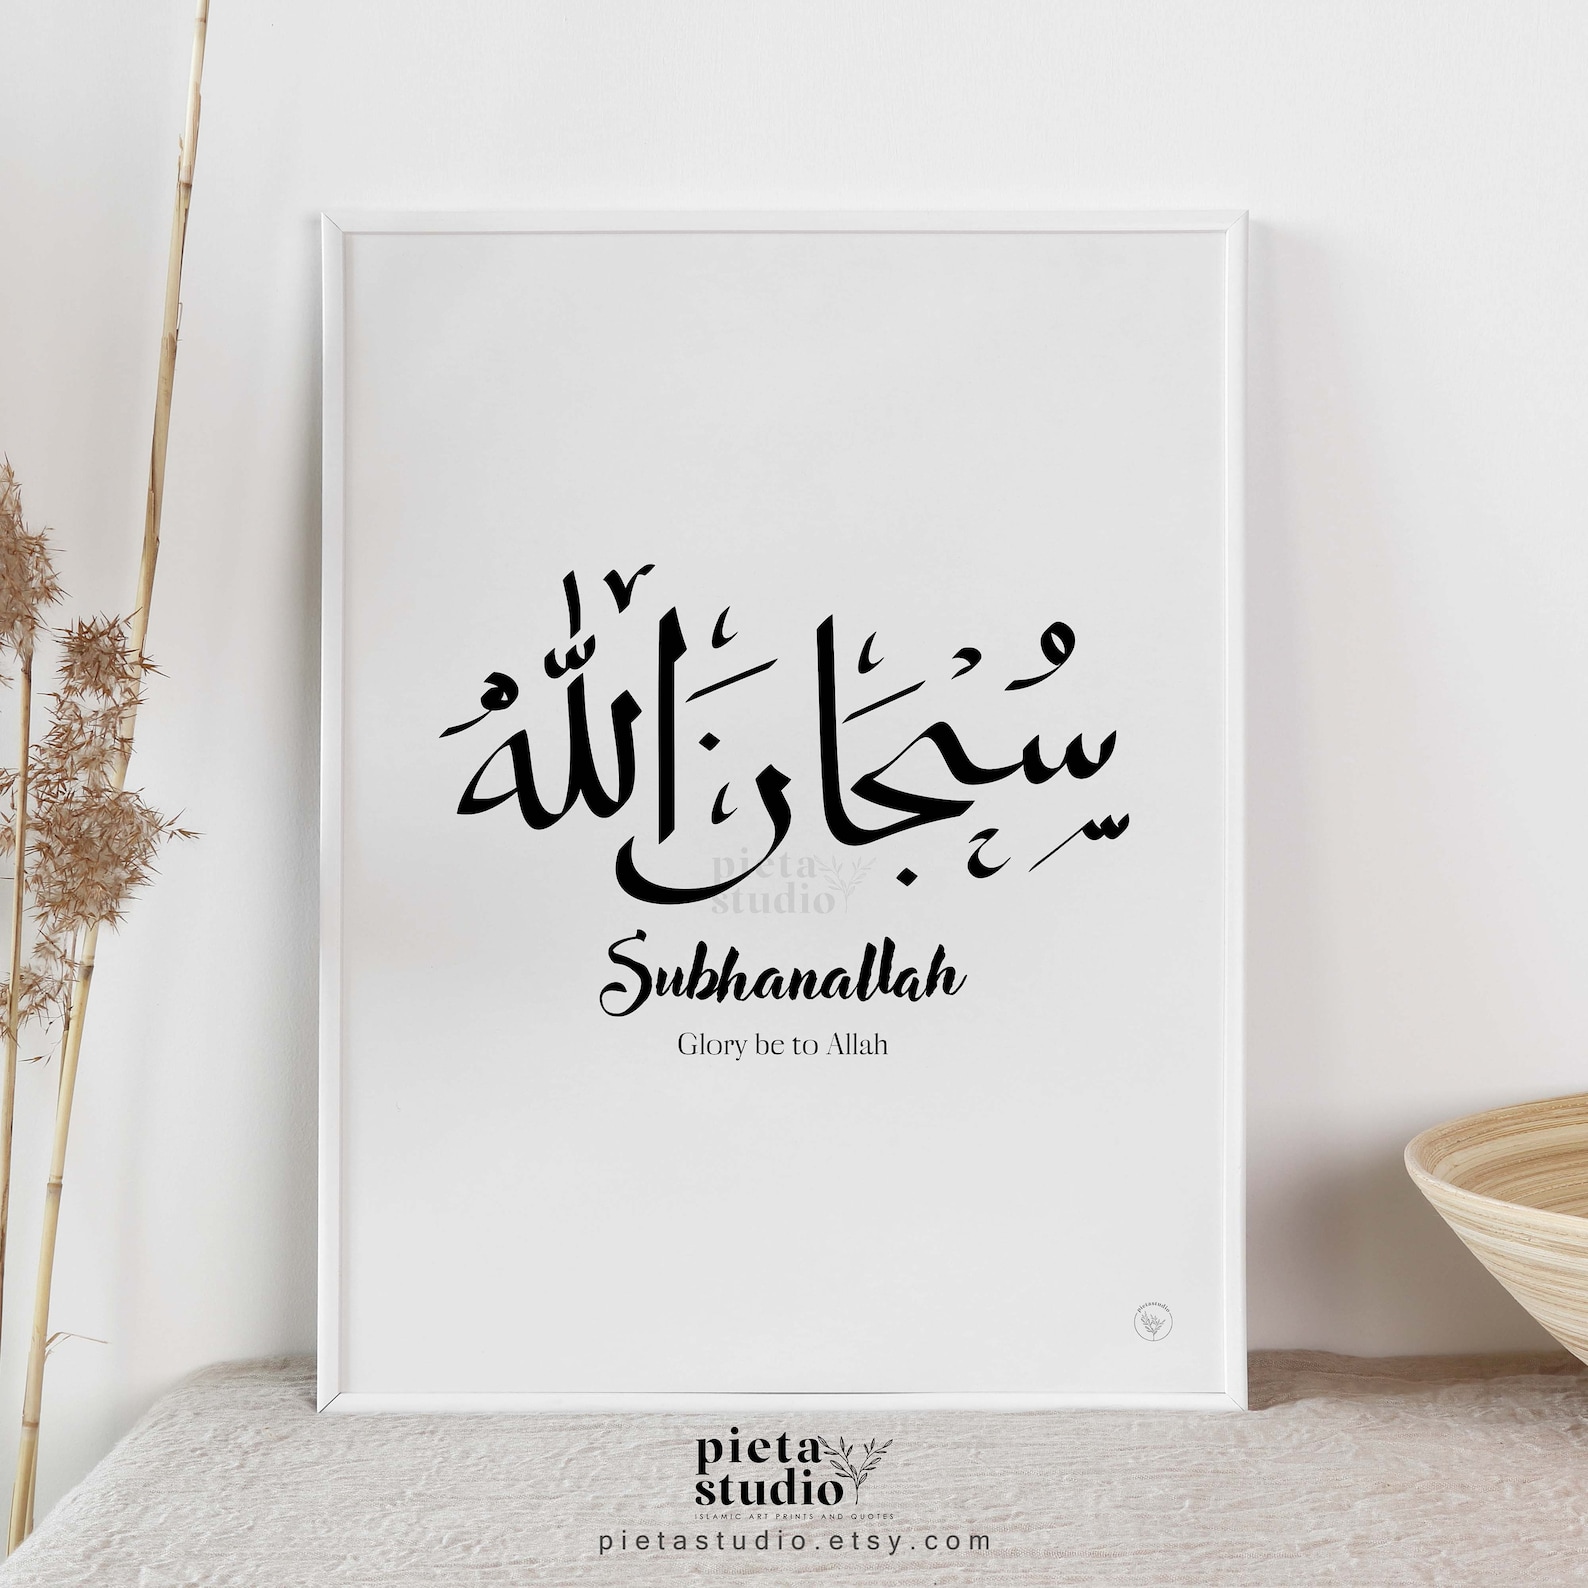 سُبْحَانَ اللّٰهُ
pieta
studio
Subhanallah
Glory be to Allah
pietastudio
pieta
studio
ISLAMIC ART PRINTS AND QUOTES
pietastudio.etsy.com